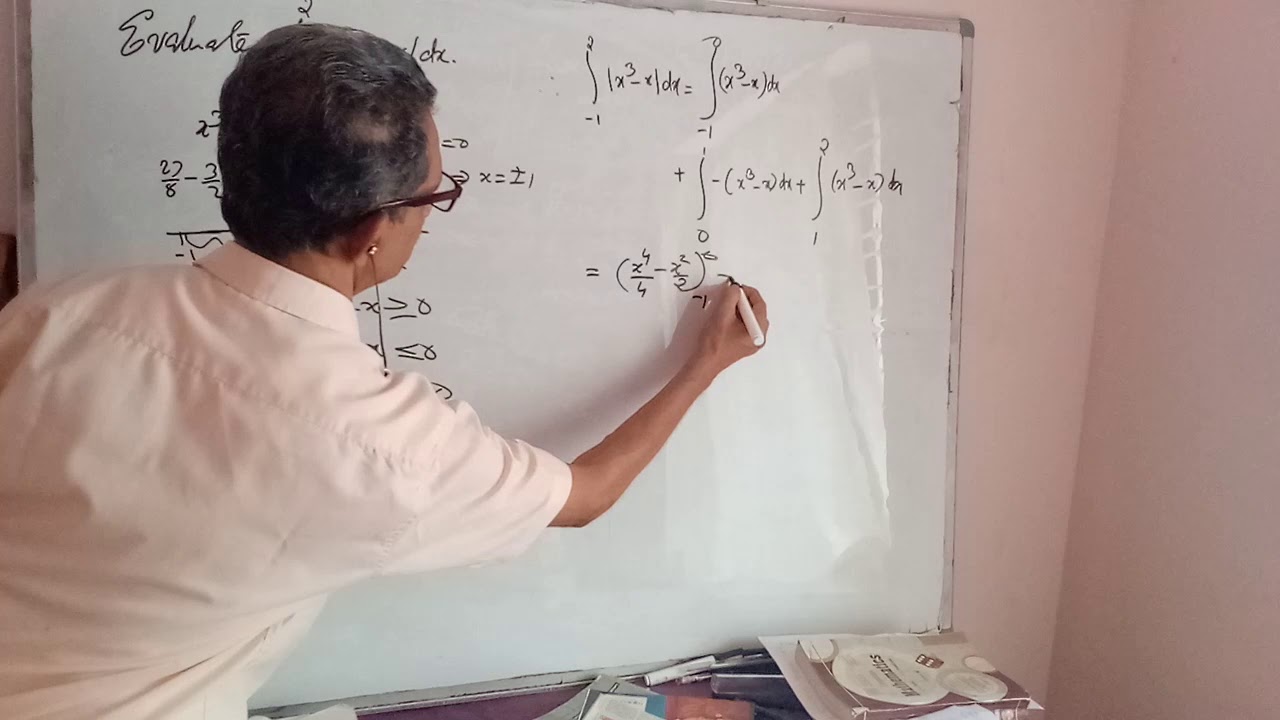 Evaluate 2 dx.
x³ =0
27/8 - 3/2 ⇒ x = ±1
-1
x ≥ 0
x ≤ 0
∫_{-1}^{2} |x³-x| dx = ∫_{-1}^{0} (x³-x) dx
+ ∫_{0}^{1} -(x³-x) dx + ∫_{1}^{2} (x³-x) dx
= (x⁴/4 - x²/2)_{-1}^{0} -
Mathematics